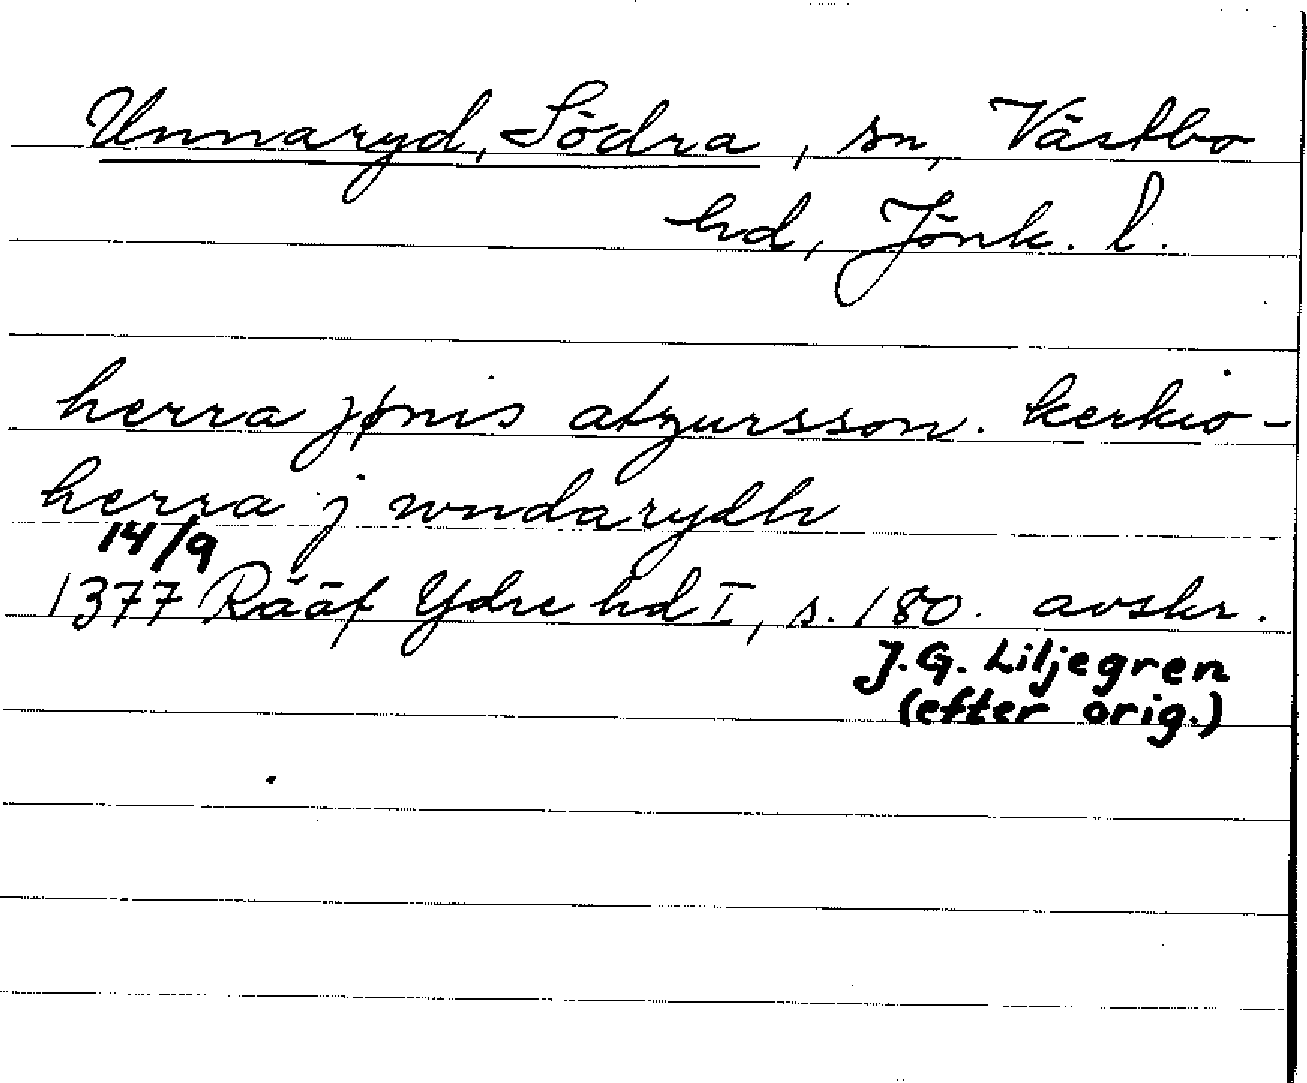 Unnaryd, Södra, sn, Västbo
hd, Jönk. l.
herra jønis atzursson. kerkio-
herra j wndarydh
14/9
1377 Rääf Ydre hd I, s. 180. avskr.
J.G. Liljegren
(efter orig.)